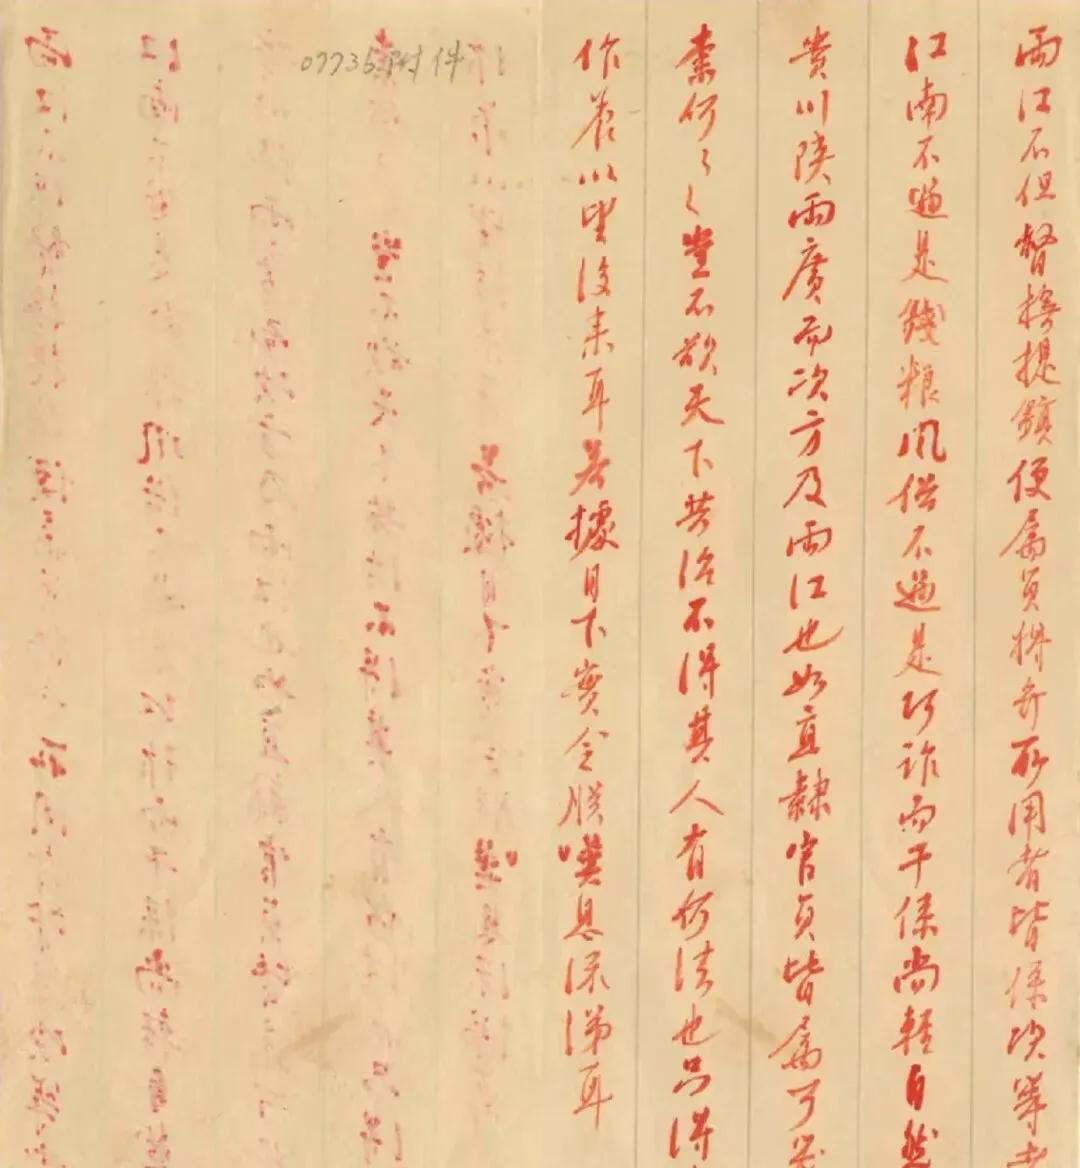 兩江不但督撫提鎮便屬員將弁所用者皆係次等者
江南不過是錢粮風俗不過是巧詐而干係尚輕自然
貴川陝兩廣而次方及兩江也如直隸官員皆屬可
柰何〻〻豈不欲天下共治不得其人有何法也只得
作養以望後來耳若據目下實令朕嘆息深淚耳
07735附件